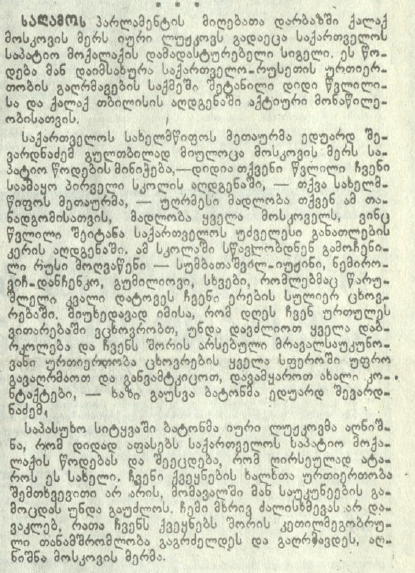 * * *
საღამოს პარლამენტის მიღებათა დარბაზში ქალაქ
მოსკოვის მერს იური ლუჟკოვს გადაეცა საქართველოს
საპატიო მოქალაქის დამადასტურებელი სიგელი. ეს წო-
დება მან დაიმსახურა საქართველო-რუსეთის ურთიერ-
თობის გაღრმავების საქმეში შეტანილი დიდი წვლილი-
სა და ქალაქ თბილისის აღდგენაში აქტიური მონაწილე-
ობისათვის.
საქართველოს სახელმწიფოს მეთაურმა ედუარდ შე-
ვარდნაძემ გულთბილად მიულოცა მოსკოვის მერს სა-
პატიო წოდების მინიჭება,—დიდია თქვენი წვლილი ჩვენი
საამაყო პირველი სკოლის აღდგენაში, — თქვა სახელმ-
წიფოს მეთაურმა, — უღრმესი მადლობა თქვენ ამ თა-
ნადგომისათვის, მადლობა ყველა მოსკოველს, ვინც
წვლილი შეიტანა საქართველოს უძველესი განათლების
კერის აღდგენაში. ამ სკოლაში სწავლობდნენ გამოჩენი-
ლი რუსი მოღვაწენი — სუმბათაშვილ-იუჟინი, ნემირო-
ვიჩ-დანჩენკო, გუმილიოვი, სხვები, რომლებმაც წარუ-
შლელი კვალი დატოვეს ჩვენი ერების სულიერ ცხოვ-
რებაში. მიუხედავად იმისა, რომ დღეს ჩვენ ურთულეს
ვითარებაში ვცხოვრობთ, უნდა დავძლიოთ ყველა დაბ-
რკოლება და ჩვენს შორის არსებული მრავალსაუკუნო-
ვანი ურთიერთობა ცხოვრების ყველა სფეროში უფრო
გავაღრმაოთ და განვამტკიცოთ, დავამყაროთ ახალი კო-
ნტაქტები, — ხაზი გაუსვა ბატონმა ედუარდ შევარდ-
ნაძემ.
საპასუხო სიტყვაში ბატონმა იური ლუჟკოვმა აღნიშ-
ნა, რომ დიდად აფასებს საქართველოს საპატიო მოქა-
ლაქის წოდებას და შეეცდება, რომ ღირსეულად ატა-
როს ეს სახელი. ჩვენი ქვეყნების ხალხთა ურთიერთობა
შემთხვევითი არ არის, მომავალში მან საუკუნეების გა-
მოცდას უნდა გაუძლოს. ჩემი მხრივ ძალისხმევას არ და-
ვაკლებ, რათა ჩვენს ქვეყნებს შორის კეთილმეგობრუ-
ლი თანამშრომლობა გაგრძელდეს და გაღრმავდეს, აღ-
ნიშნა მოსკოვის მერმა.